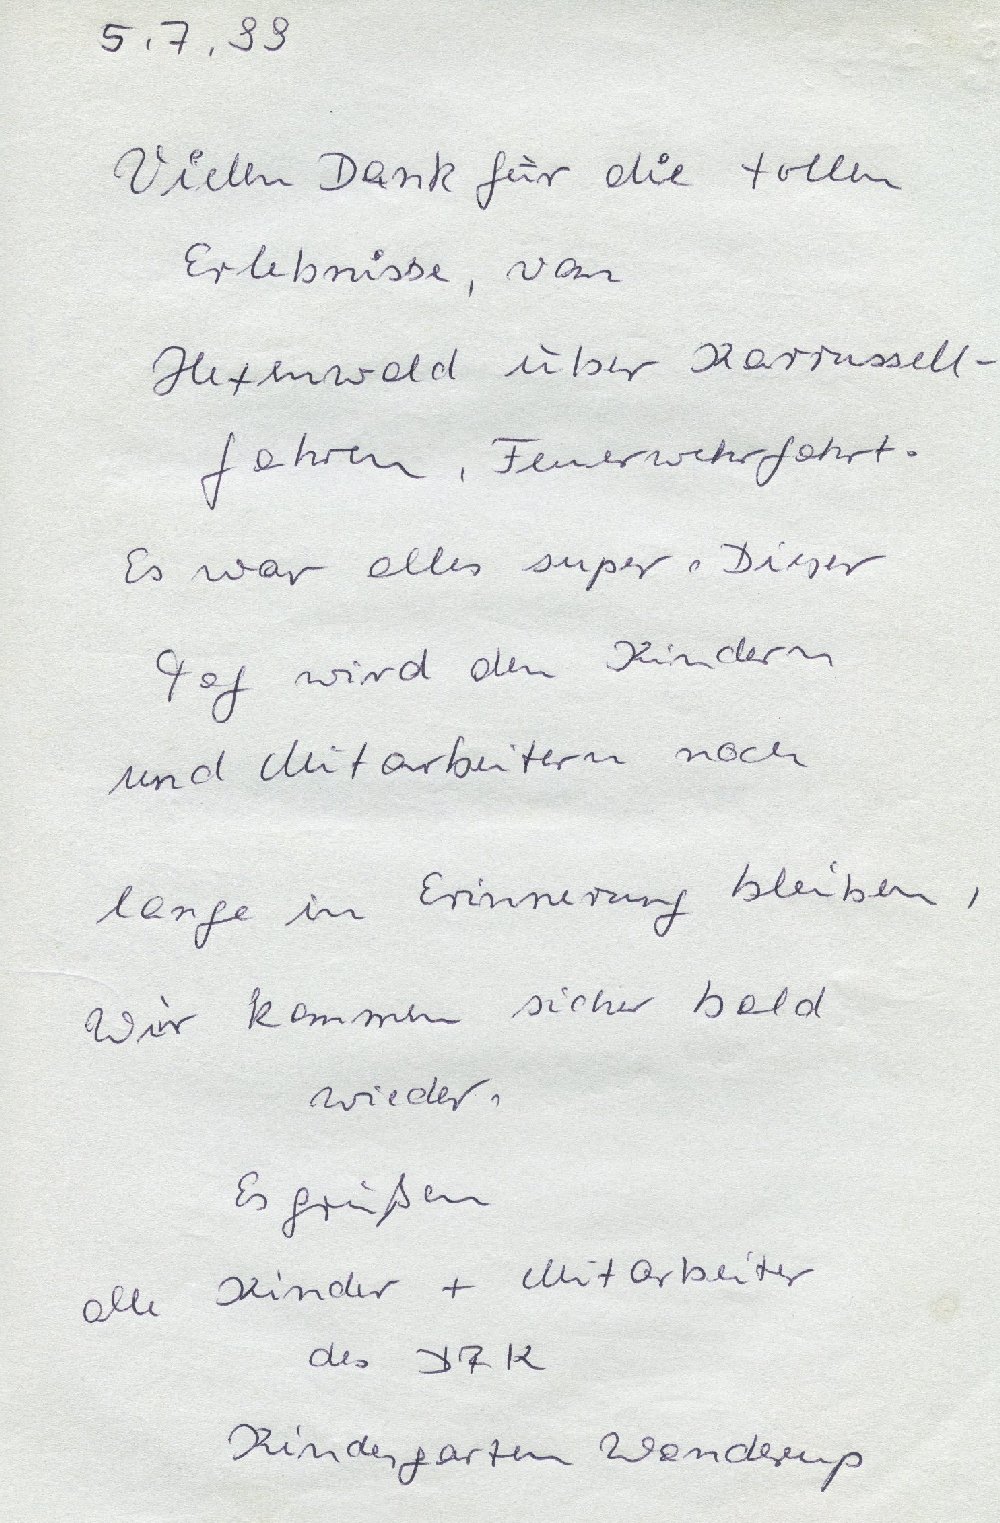 5.7.99
Vielen Dank für die tollen
Erlebnisse, von
Hexenwald über Karrussell-
fahren, Feuerwehrfahrt.
Es war alles super. Dieser
Tag wird den Kindern
und Mitarbeitern noch
lange in Erinnerung bleiben,
Wir kommen sicher bald
wieder.
Es grüßen
alle Kinder + Mitarbeiter
des
Kindergarten Wanderup